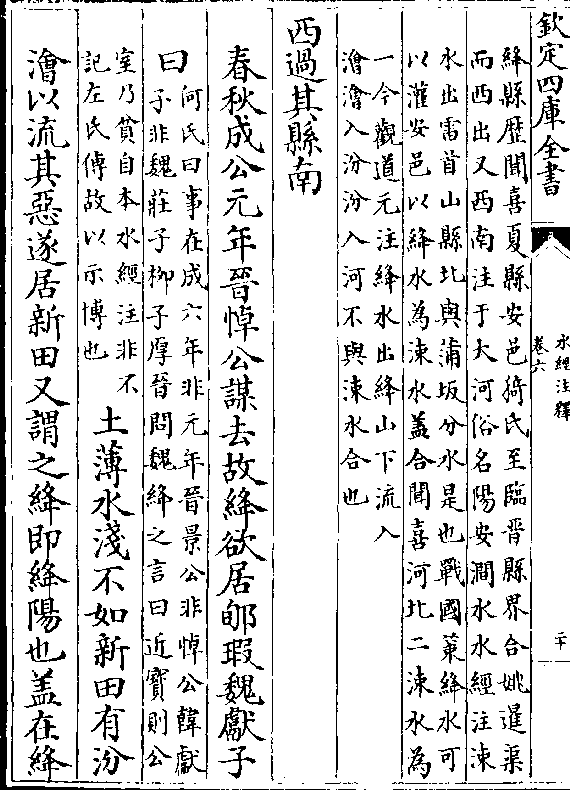 欽定四庫全書
水經注釋
卷六
二十
絳縣歴聞喜夏縣安邑猗氏至臨晉縣界合姚暹渠
而西出又西南注于大河俗名陽安澗水水經注涑
水出雷首山縣北與蒲坂分水是也戰國䇿絳水可
以灌安邑以絳水為涑水盖合聞喜河北二涑水為
一今觀道元注絳水出絳山下流入
澮澮入汾汾入河不與涑水合也
西過其縣南
春秋成公元年晉悼公謀去故絳欲居郇瑕魏獻子
何氏曰事在成六年非元年晉景公非悼公韓獻
曰子非魏莊子柳子厚晉問魏絳之言曰近寳則公
室乃貧自本水經注非不
記左氏傳故以示博也
土薄水淺不如新田有汾
澮以流其惡遂居新田又謂之絳即絳陽也盖在絳